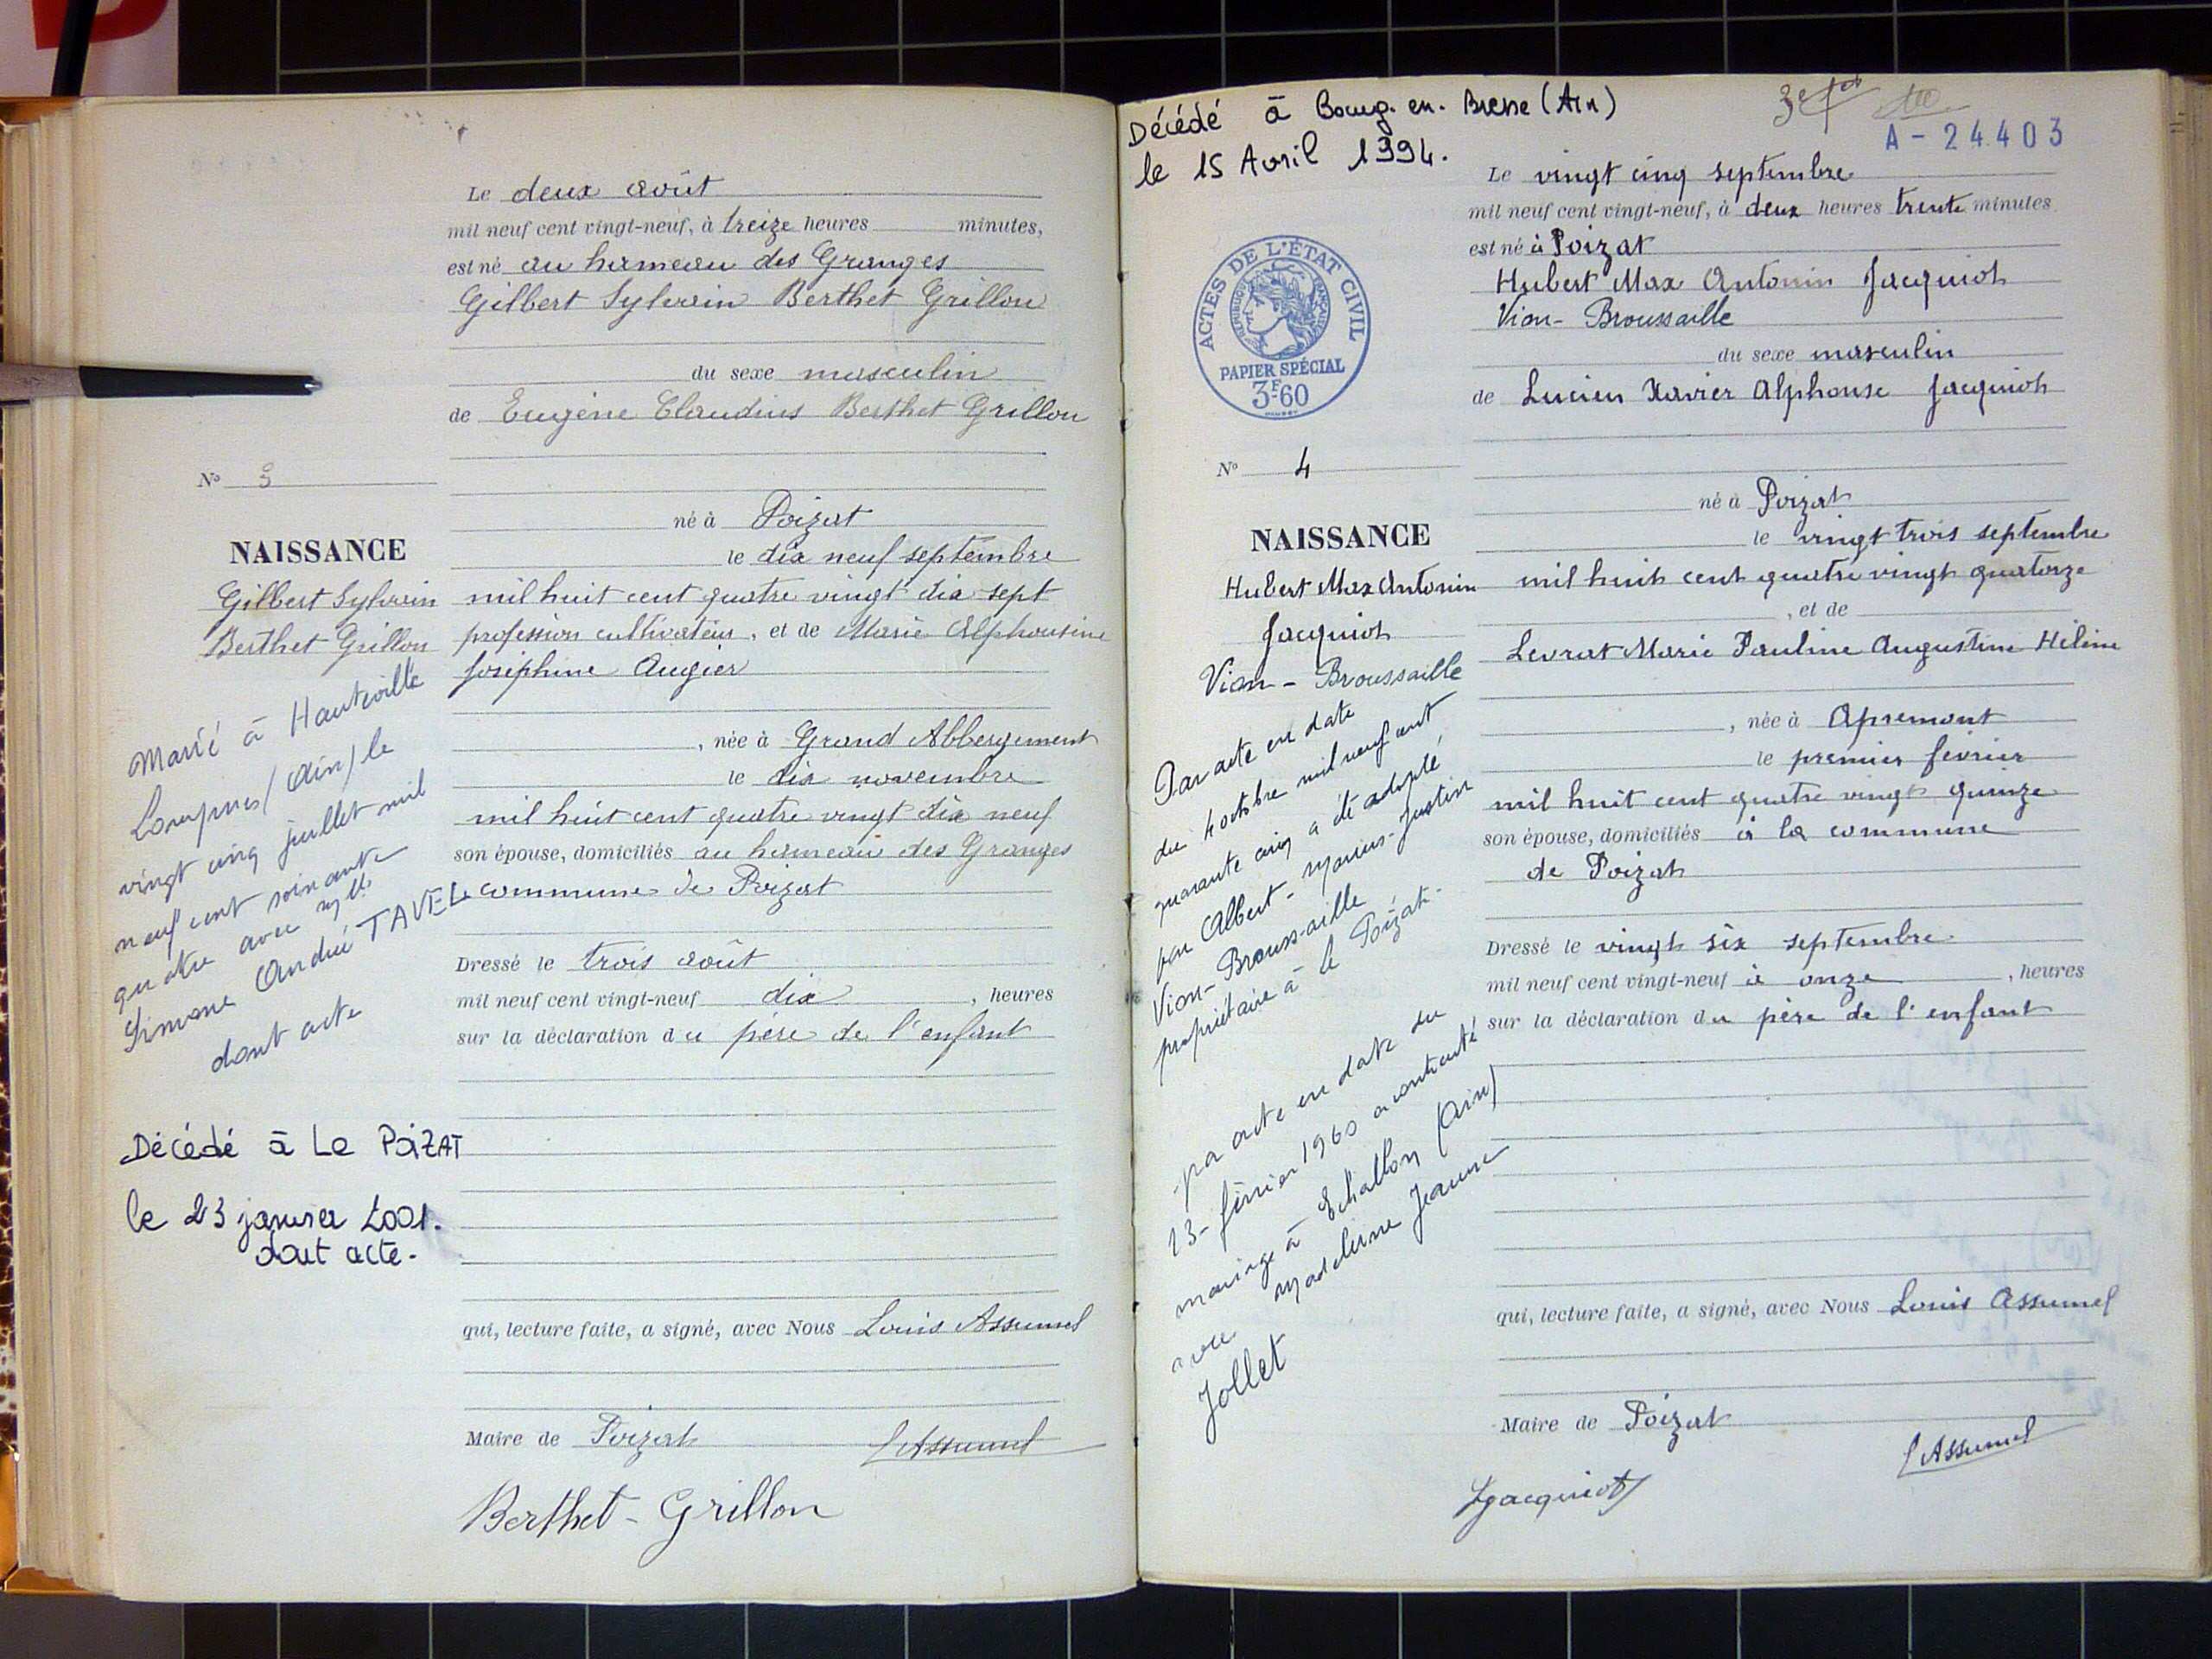 Le deux août
mil neuf cent vingt-neuf, à treize heures minutes,
est né au hameau des Granges
Gilbert Sylvain Berthet Grillon
du sexe masculin
de Eugène Claudius Berthet Grillon
né à Poizat
le dix neuf septembre
mil huit cent quatre vingt dix sept
profession cultivateur, et de Marie Alphonsine
Joséphine Augier
, née à Grand Abbergement
le dix novembre
mil huit cent quatre vingt dix neuf
son épouse, domiciliés au hameau des Granges
commune de Poizat
Dressé le trois août
mil neuf cent vingt-neuf dix , heures
sur la déclaration du père de l'enfant
qui, lecture faite, a signé, avec Nous Louis Assumel
Maire de Poizat
LAssumel
Berthet-Grillon
No 3
NAISSANCE
Gilbert Sylvain
Berthet Grillon
Marié à Hauteville
Lompnes (Ain) le
vingt cinq juillet mil
neuf cent soixante
quatre avec Mlle
Simone Andrée TAVEL
dont acte
Décédé à Le PoiZAT
le 23 janvier 2001.
dont acte.
Décédé à Bourg. en. Bresse (Ain)
le 15 Avril 1994.
A - 24403
ACTES DE L'ÉTAT CIVIL
RÉPUBLIQUE FRANÇAISE
PAPIER SPÉCIAL
3F60
No 4
NAISSANCE
Hubert Max Antonin
Jacquiot
Vion-Broussaille
Par acte en date
du 4 octobre mil neuf cent
quarante cinq a été adopté
par Albert-Marius-Justin
Vion-Broussaille
propriétaire à le Poizat-
par acte en date du
13-février 1960 a contracté
mariage à Echallon (Ain)
avec Madeleine Jeanne
Jollet
Le vingt cinq septembre
mil neuf cent vingt-neuf, à deux heures trente minutes
est né à Poizat
Hubert Max Antonin Jacquiot
Vion-Broussaille
du sexe masculin
de Lucien Xavier Alphonse Jacquiot
né à Poizat
le vingt trois septembre
mil huit cent quatre vingt quatorze
, et de
Levrat Marie Pauline Augustine Hélène
, née à Apremont
le premier février
mil huit cent quatre vingt quinze
son épouse, domiciliés à la commune
de Poizat
Dressé le vingt six septembre
mil neuf cent vingt-neuf à onze , heures
sur la déclaration du père de l'enfant
qui, lecture faite, a signé, avec Nous Louis Assumel
Maire de Poizat
LAssumel
LJacquiot